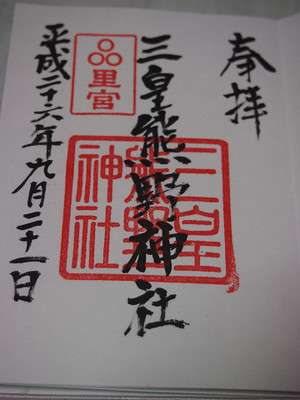 奉拝
三皇熊野神社
三皇熊野神社
里宮
平成二十六年九月二十一日